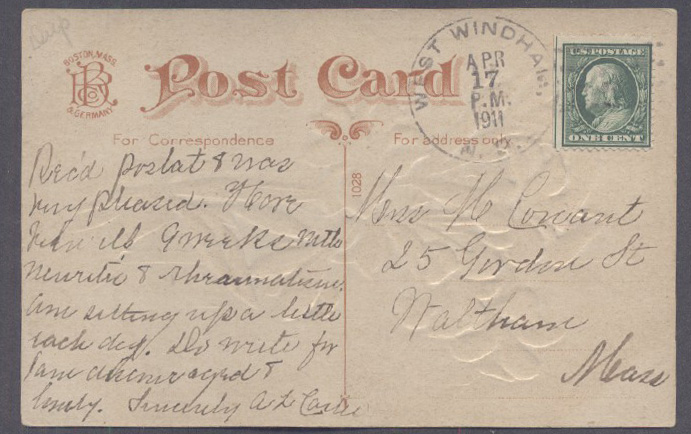 BOSTON, MASS.
& GERMANY.
Post Card
For Correspondence
For address only
WEST WINDHAM,
APR
17
P.M.
1911
N.H.
U.S. POSTAGE
ONE CENT
1028
Rec'd postal & was
very pleased. Have
been ill 9 weeks with
neuritis & rheumatism.
Am sitting up a little
each day. Do write for
I am discouraged &
lonely. Sincerely A L
H Conant
25 Gordon St
Waltham
Mass